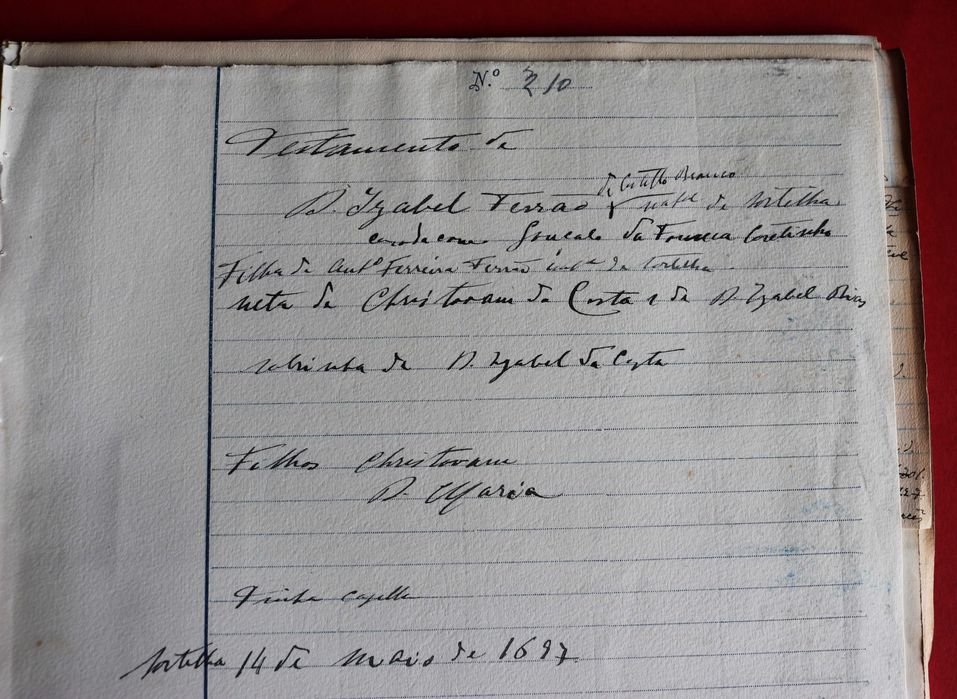 Nº 210
Testamento de
de Castello Branco
D. Izabel Ferrão de Sortelha
casada com Gonçalo da Fonseca Coutinho
Filha de Antº Ferreira Ferrão de Sortelha
neta de Christovam da Costa e de D. Izabel
sobrinha de D. Izabel da Costa
Filhos Christovam
D. Maria
Tinha capella
Sortelha 14 de Maio de 1697